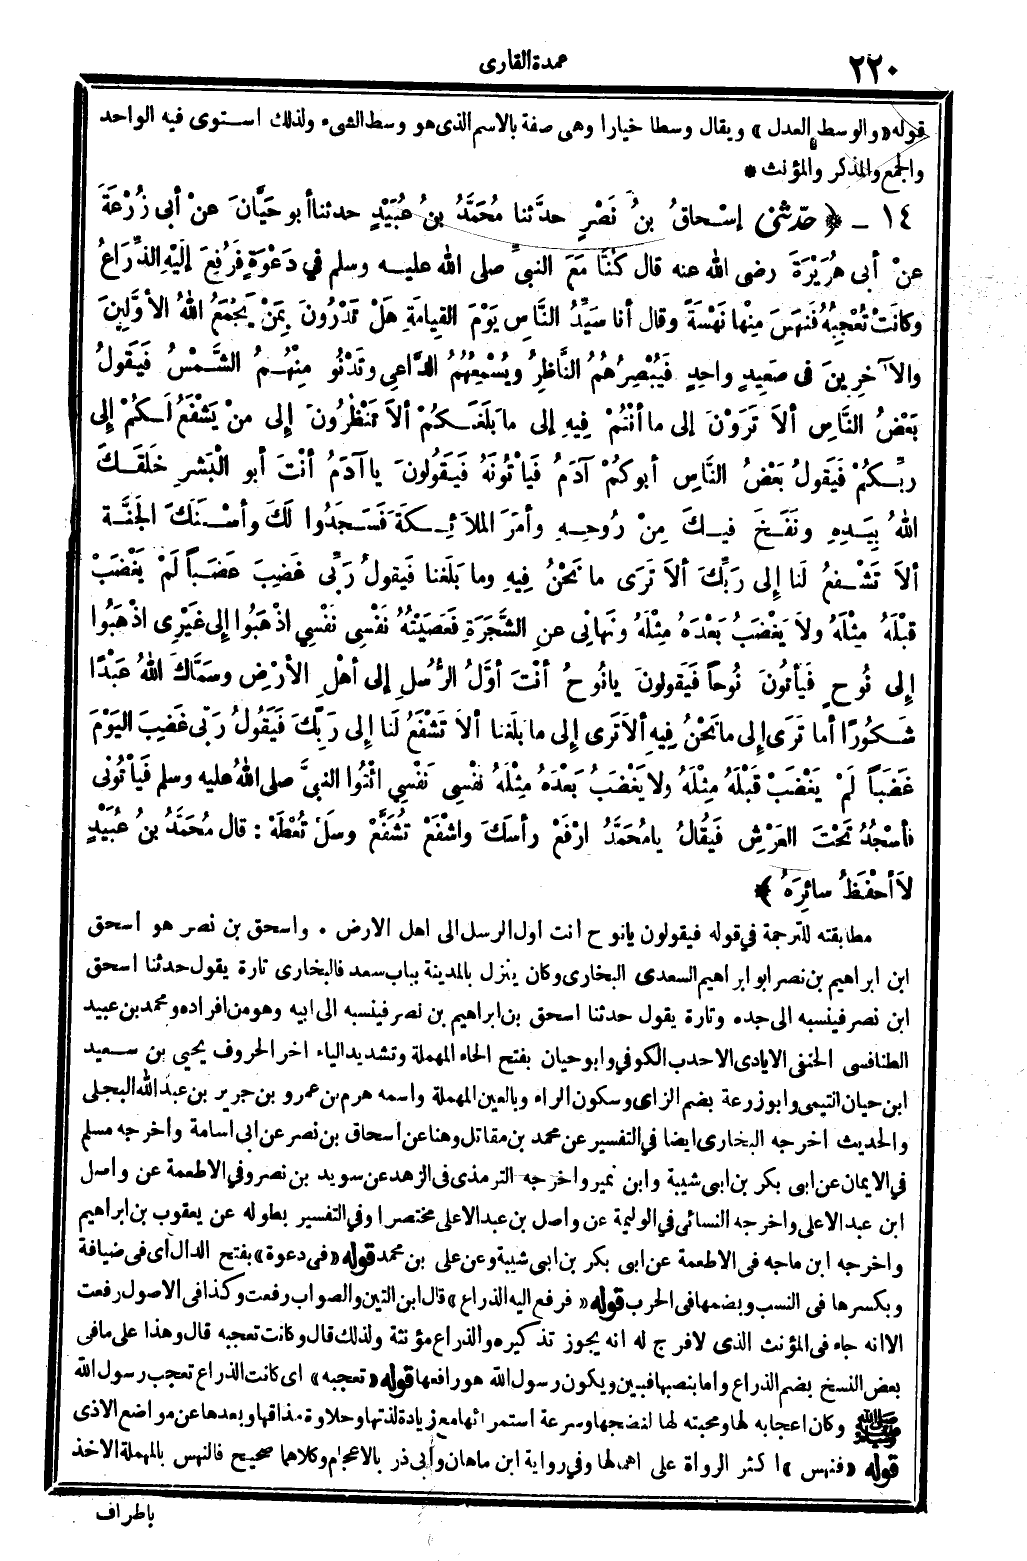 ٢٢٠
عمدة القارى
قوله «والوسط العدل» ويقال وسطا خيارا وهى صفة بالاسم الذى هو وسط الشىء ولذلك استوى فيه الواحد
والجمع والمذكر والمؤنث *
١٤ ـ ﴿ حَدَّثَنِى إِسْحَاقُ بنُ نَصْرٍ حدَّثنا مُحَمَّدُ بنُ عُبَيْدٍ حدثنا أبو حَيَّانَ عنْ أبى زُرْعَةَ
عنْ أبى هُرَيْرَةَ رضى الله عنه قال كُنَّا مَعَ النبىِّ صلى الله عليه وسلم فى دَعْوَةٍ فَرُفِعَ إلَيْهِ الذِّرَاعُ
وكانَتْ تُعْجِبُهُ فَنَهَسَ مِنْها نَهْسَةً وقال أنا سَيِّدُ النَّاسِ يَوْمَ القيامَةِ هَلْ تَدْرُونَ بِمَنْ يَجْمَعُ اللهُ الأوَّلِينَ
والآخِرِينَ فى صَعِيدٍ واحِدٍ فَيُبْصِرُهُمُ النَّاظِرُ ويُسْمِعُهُمُ الدَّاعِى وتَدْنُو مِنْهُمُ الشَّمْسُ فَيَقُولُ
بَعْضُ النَّاسِ ألاَ تَرَوْنَ إلى ما أنْتُمْ فِيهِ إلى ما بَلَغَكُمْ ألاَ تَنْظُرُونَ إلى مَنْ يَشْفَعُ لَكُمْ إلى
رَبِّكُمْ فَيَقُولُ بَعْضُ النَّاسِ أبوكُمْ آدَمُ فَيَأْتُونَهُ فَيَقُولُونَ يا آدَمُ أنْتَ أبو الْبَشَرِ خَلَقَكَ
اللهُ بِيَدِهِ ونَفَخَ فيكَ مِنْ رُوحِهِ وأمَرَ المَلاَئِكَةَ فَسَجَدُوا لَكَ وأسْكَنَكَ الجَنَّةَ
ألاَ تَشْفَعُ لَنا إلى رَبِّكَ ألاَ تَرَى ما نَحْنُ فِيهِ وما بَلَغَنا فَيَقُولُ رَبِّى غَضِبَ غَضَباً لَمْ يَغْضَبْ
قَبْلَهُ مِثْلَهُ ولاَ يَغْضَبُ بَعْدَهُ مِثْلَهُ ونَهانِى عنِ الشَّجَرَةِ فَعَصَيْتُهُ نَفْسِى نَفْسِى اذْهَبُوا إلى غَيْرِى اذْهَبُوا
إلى نُوحٍ فَيَأْتُونَ نُوحاً فَيَقُولونَ يا نُوحُ أنْتَ أوَّلُ الرُّسُلِ إلى أهْلِ الأرْضِ وسَمَّاكَ اللهُ عَبْدًا
شَكُورًا أما تَرَى إلى ما نَحْنُ فِيهِ ألاَ تَرَى إلى ما بَلَغَنا ألاَ تَشْفَعُ لَنا إلى رَبِّكَ فَيَقُولُ رَبِّى غَضِبَ اليَوْمَ
غَضَباً لَمْ يَغْضَبْ قَبْلَهُ مِثْلَهُ ولا يَغْضَبُ بَعْدَهُ مِثْلَهُ نَفْسِى نَفْسِى ائْتُوا النبىَّ صلى اللهُ عليه وسلم فَيَأْتُونِى
فأسْجُدُ تَحْتَ العَرْشِ فَيُقالُ يا مُحَمَّدُ ارْفَعْ رأسَكَ واشْفَعْ تُشَفَّعْ وسَلْ تُعْطَهْ : قال مُحَمَّدُ بنُ عُبَيْدٍ
لاَ أحْفَظُ سائِرَهُ ﴾
مطابقته للترجمة فى قوله فيقولون يا نوح أنت اول الرسل الى اهل الارض • واسحق بن نصر هو اسحق
ابن ابراهيم بن نصر ابو ابراهيم السعدى البخارى وكان ينزل بالمدينة بباب سعد فالبخارى تارة يقول حدثنا اسحق
ابن نصر فينسبه الى جده وتارة يقول حدثنا اسحق بن ابراهيم بن نصر فينسبه الى ابيه وهو من افراده ومحمد بن عبيد
الطنافسى الحنفى الايادى الاحدب الكوفى وابو حيان بفتح الحاء المهملة وتشديد الياء اخر الحروف يحيى بن سعيد
ابن حيان التيمى وابو زرعة بضم الزاى وسكون الراء وبالعين المهملة واسمه هرم بن عمرو بن جرير بن عبد الله البجلى
والحديث اخرجه البخارى ايضا فى التفسير عن محمد بن مقاتل وهنا عن اسحاق بن نصر عن ابى اسامة وأخرجه مسلم
فى الايمان عن ابى بكر بن ابى شيبة وابن نمير واخرجه الترمذى فى الزهد عن سويد بن نصر وفى الاطعمة عن واصل
ابن عبد الاعلى واخرجه النسائى فى الوليمة عن واصل بن عبد الاعلى مختصرا وفى التفسير بطوله عن يعقوب بن ابراهيم
واخرجه ابن ماجه فى الاطعمة عن ابى بكر بن ابى شيبة وعن على بن محمد قوله «فى دعوة» بفتح الدال اى فى ضيافة
وبكسرها فى النسب وبضمها فى الحرب قوله «فرفع اليه الذراع» قال ابن التين والصواب رفعت وكذا فى الاصول رفعت
الا انه جاء فى المؤنث الذى لا فرج له انه يجوز تذكيره والذراع مؤنثة ولذلك قال وكانت تعجبه قال وهذا على ما فى
بعض النسخ بضم الذراع واما بنصبها فبين ويكون رسول الله هو رافعها قوله «تعجبه» اى كانت الذراع تعجب رسول الله
ﷺ وكان اعجابه لها ومحبته لها لنضجها وسرعة استمرائها مع زيادة لذتها وحلاوة مذاقها وبعدها عن مواضع الاذى
قوله «فنهس» اكثر الرواة على اهمالها وفى رواية ابن ماهان وأبى ذر بالاعجام وكلاهما صحيح فالنهس بالمهملة الاخذ
باطراف